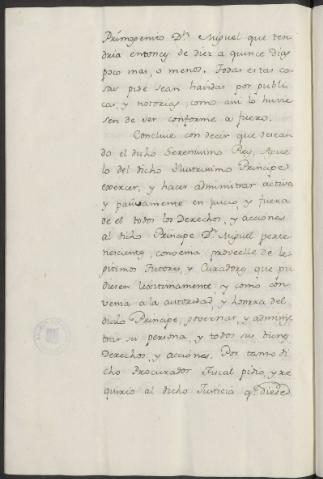 Primogenito D.n Miguel que ten
dria entonces de diez a quince dias
poco mas, o menos. Todas estas co
sas pide sean havidas por publi
cas, y notorias, como asi lo huvie
sen de ser conforme a fuero.
Concluie con decir que desean
do el dicho Serenisimo Rey, Abue
lo del dicho Ilustrisimo Principe
exercer, y hacer administrar activa
y pasivamente en juicio, y fuera
de el todos los Derechos, y acciones
al dicho Principe D.n Miguel perte
necientes, convenia proveelle de le
gitimos Tutores, y Curadores, que pu
diesen legitimamente, y como con
venia a la autoridad, y honrra del
dicho Principe, governar, y adminis
trar su persona, y todos sus bienes
Derechos, y acciones. Por tanto di
cho Procurador Fiscal pidio, y re
quirio al dicho Justicia q.e diese